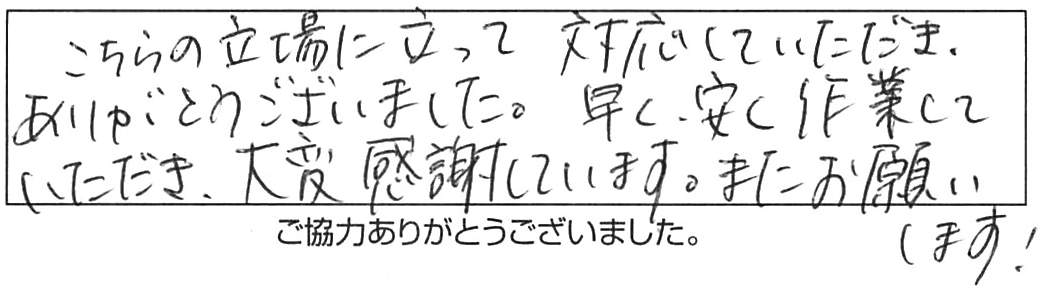 こちらの立場に立って 対応していただき、
ありがとうございました。 早く、安く作業して
いただき、大変感謝しています。またお願い
します!
ご協力ありがとうございました。